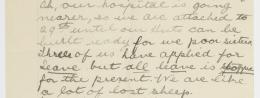 Oh, our hospital is going
nearer, so we are attached to
29th until our huts can be
built ready for we poor sisters
Three of us have applied for
leave but all leave is stopped
for the present. We are like
a lot of lost sheep.